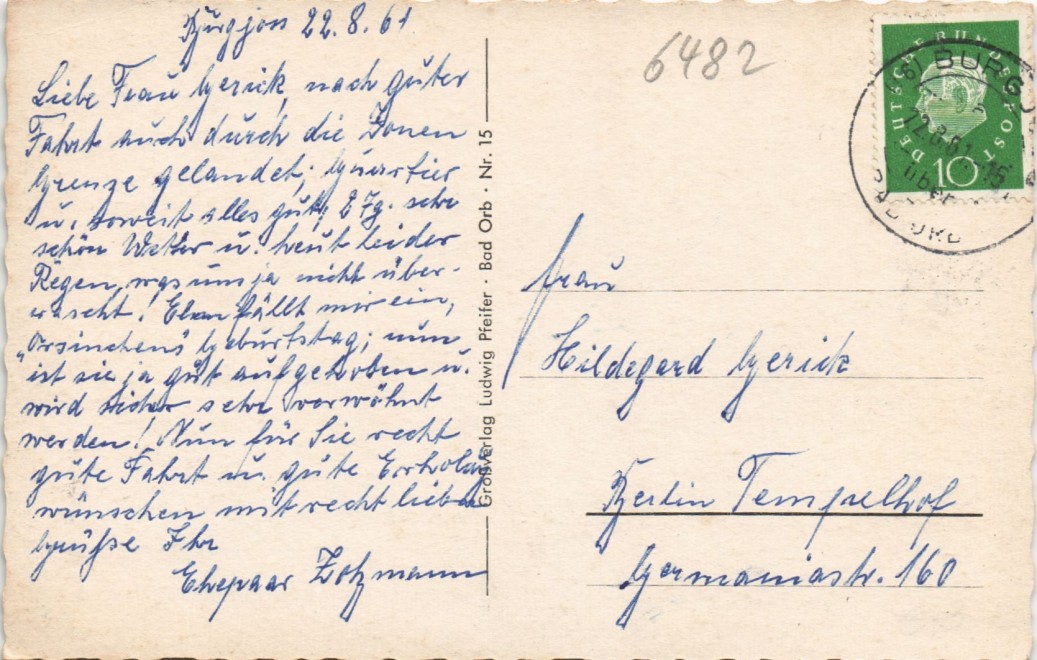 Burgjoss 22.8.61
Liebe Frau Gerick, nach guter
Fahrt auch durch die Zonen
Grenze gelandet; Quartier
u. soweit alles gut; 2 Tg. sehr
schön Wetter u. heut leider
Regen, was uns ja nicht über-
rascht! Eben fällt mir ein,
Geburtstag; nun
ist sie ja gut aufgehoben u.
wird sicher sehr verwöhnt
werden! Nun für Sie recht
gute Fahrt u. gute Erholug
wünschen mit recht lieben
Grüsse Ihr
Ehepaar Zotzmann
Großverlag Ludwig Pfeifer · Bad Orb · Nr. 15
6482
DEUTSCHE BUNDESPOST
10
(16) BURGJ
22.8.61
über
BAD ORB
Frau
Hildegard Gerick
Berlin Tempelhof
Germaniastr. 160